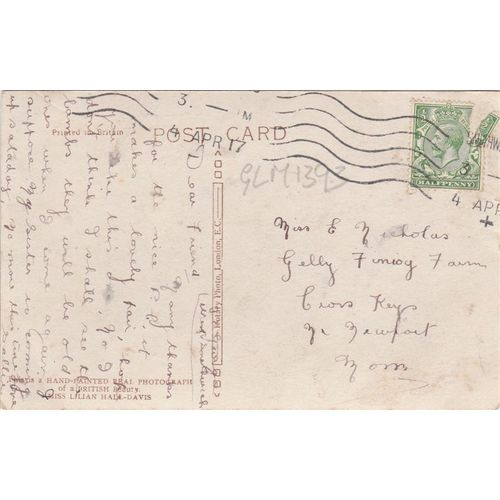 3. — M
4 APR 17
4 APR
+
HALFPENNY
Printed in Britain
POST CARD
GLM1393
Rotary Photo, London, E.C.
Miss E Nicholas
Gelly Finiog Farm
Cross Keys
Nr Newport
Mon
Dear Friend
Many thanks
for the nice P.C, it
makes a lovely pair, how
do you like this
don't think I shall see the
lambs they will be old
ones when I come again,
suppose my sister is coming
up saladay, No more this time from
This is a HAND-PAINTED REAL PHOTOGRAPH
of a BRITISH Beauty.
MISS LILIAN HALL-DAVIS